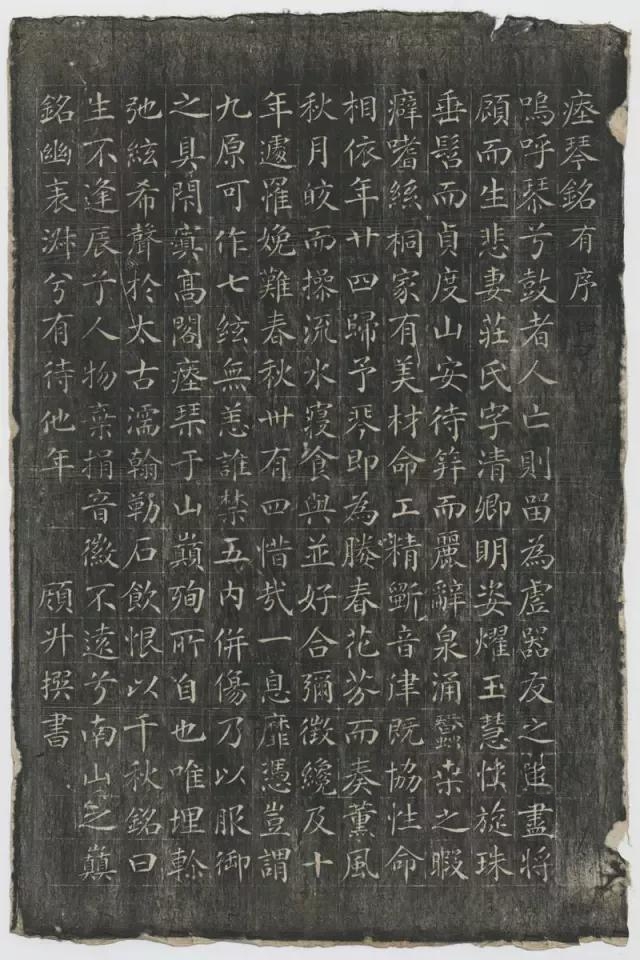 瘞琴銘有序
嗚呼琴兮鼓者人亡則留為虛器友之逝盡將
顧而生悲妻莊氏字清卿明姿燿玉慧悏旋珠
垂髫而貞度山安待笄而麗辭泉涌蠶桒之暇
癖嗜絲桐家有美材命工精斲音律既協性命
相依年廿四歸予琴即為媵春花芬而奏薰風
秋月皎而操流水寢食與並好合彌徵纔及十
年遽罹娩難春秋卅有四惜㦲一息靡憑豈謂
九原可作七絃無恙誰禁五內併傷乃以服御
之具閉寘高閣瘞琹于山巔殉所自也唯埋軫
弛絃希聲於太古濡翰勒石飲恨以千秋銘曰
生不逢辰兮人物棄捐音徽不遠兮南山之巔
銘幽表淑兮有待他年 顧升撰書